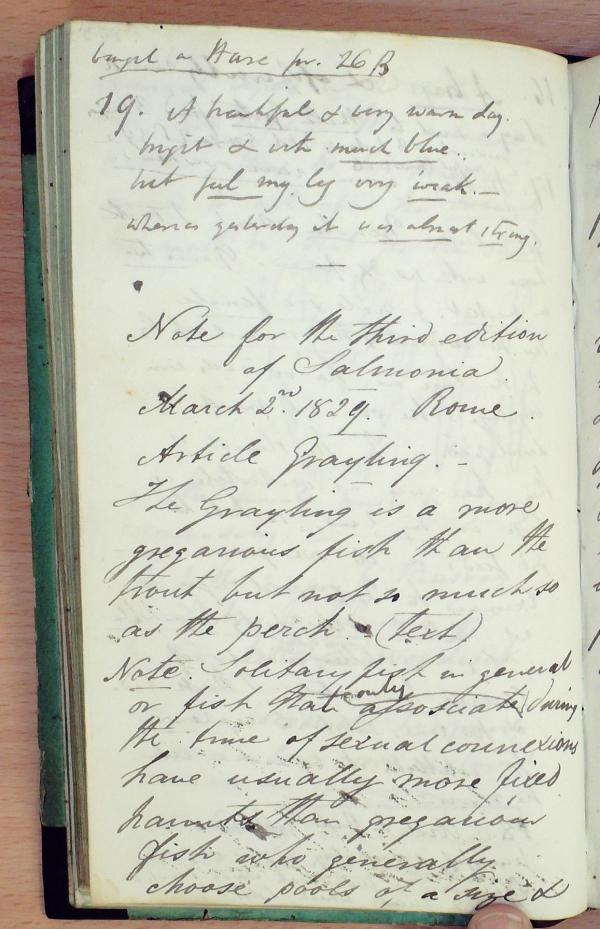 bought a Hare for 26 B
19. A beautiful & very warm day.
bright & with much blue.
but feel my leg very weak. _
whereas yesterday it was almost strong.
Note for the third edition
of Salmonia.
March 2nd. 1829. Rome.
Article Grayling. -
The Grayling is a more
gregarious fish than the
trout but not so much so
as the perch. (text)
Note. Solitary fish in general
or fish that only associate during
the time of sexual connexions
have usually more fixed
haunts than gregarious
fish who generally
choose pools of a size &